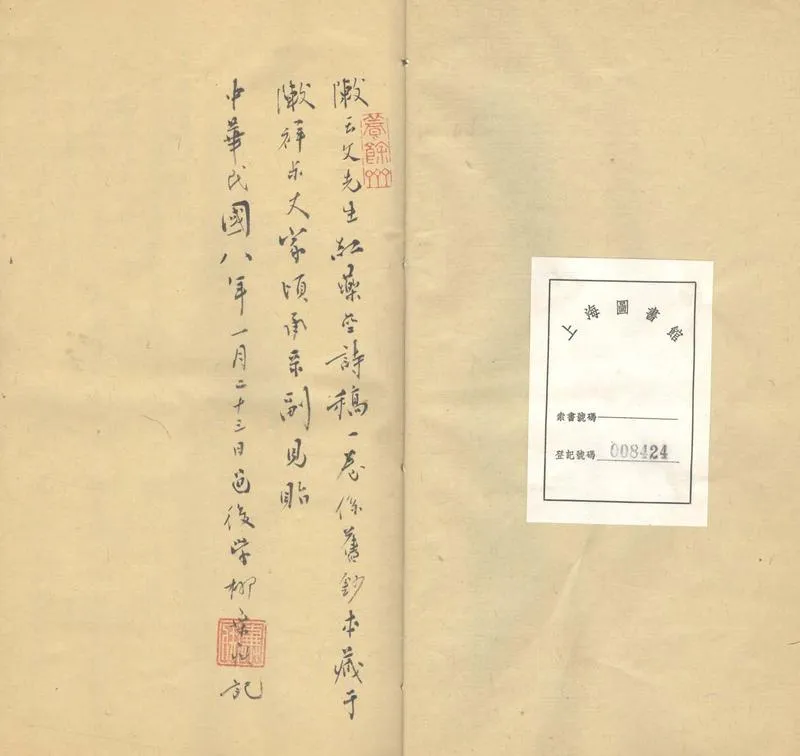 上海圖書館
索書號碼
登記號碼 008424
敶云父先生紅藥坣詩稿一卷係舊鈔本藏于
敶祥叔丈家頃承录副見貽
中華民國八年一月二十三日邑後學柳棄疾記
養餘